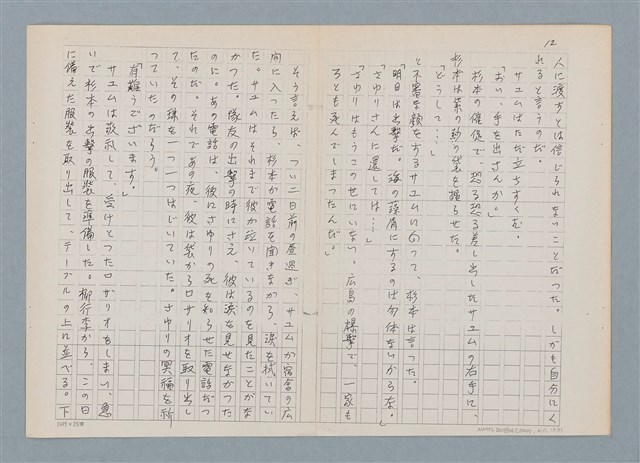 12
人に渡すとは信じられないことだった。しかも自分にく
れると言うのだ。
サユムはただ立ちすくむ。
「おい、手を出さんか。」
杉本の催促で、恐る恐る差し出したサユムの右手に、
杉本は紫の数の袋を握らせた。
「どうして…」
と不審な顔をするサユムに向って、杉本は言った。
「明日は出撃だ。海の藻屑にするのは勿体ないからな。」
「さゆりさんに還しては…。」
「さゆりはもうこの世にいない。広島の爆撃で、一家も
ろとも死んでしまったんだ。」
そう言えば、つい二日前の昼過ぎ、サユムが宿舎の広
間に入ったら、杉本が電話を聞きながら、涙を拭いてい
た。サユムはそれまで彼が泣いているのを見たことがな
かった。隊友の出撃の時にさえ、彼は涙を見せなかった
のに。あの電話は、彼にさゆりの死を知らせた電話だっ
たのだ。それであの夜、彼は袋からロザリオを取り出し
て、その珠を一つ一つはじいていた。さゆりの冥福を祈
っていたのだろう。
「有難うございます。」
サユムは敬礼して、受けとったロザリオをしまい、急
いで杉本の出撃の服装を準備した。柳行李から、この日
に備えた服装を取り出して、テーブルの上に並べる。下